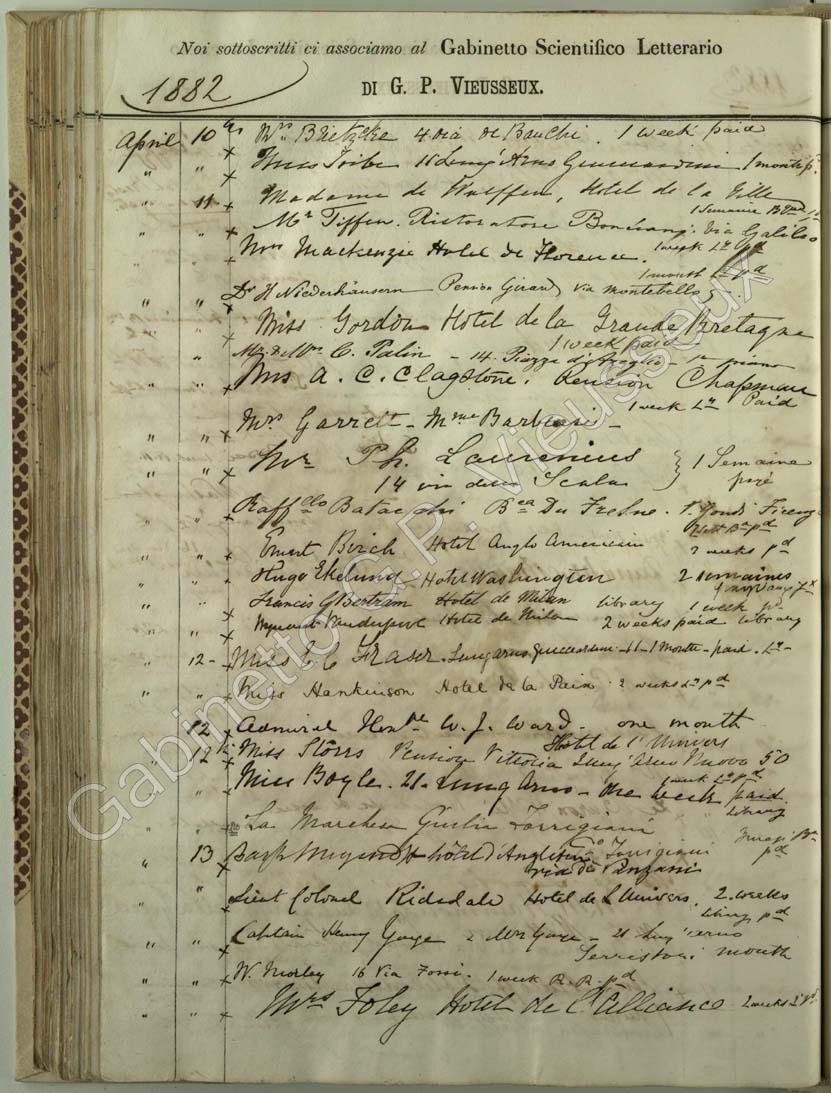 Noi sottoscritti ci associamo al Gabinetto Scientifico Letterario
DI G. P. VIEUSSEUX.
1882
April 10 Mrs 4 via de 1 week paid
" " Miss 11 Lung' Arno Guicciardini 1 month
" 11 Madame de Hotel de la Ville
1 Semaine
" " Mr Tiffen. Ristoratore Via Galileo
" " Mrs Mackenzie Hotel de Florence. 1 week Ly pd
1 month pd
" " Dr H Niederhäusern Pension Girard via Montebello 5.
Miss Gordon Hotel de la Grande Bretagne
1 week paid
Mr. & Mrs C. Palin - 14 Piazza d'Azeglio - 1o piano
" " Mrs A. C. Clagstone. Pension Chapman
1 week Ly Paid
" " Mrs Garrett - Mme Barbensi -
" " Mr Ph. Laurenius 1 Semaine
14 via della Scala payé
" " Raffllo Du Fresne. Firenze
" " Ernest Birch Hotel Anglo Americain 2 weeks pd
" " Hugo Ekelund Hotel Washington 2 semaines
" " Francis G Bertram Hotel de Milan library 1 week pd
" " Hotel de Milan 2 weeks paid library
" 12- Miss E C Fraser. Lungarno Guicciardini - 11 - 1 Month - paid. Ly -
" " Miss Hankinson Hotel de la Paix. 2 weeks Ly pd
12 Admiral Honble W. J. Ward. one month
Hotel de l'Univers
" 12th Miss Storrs Pension Vittoria Lung' Arno Nuovo 50
1 week Ly pd
" " Miss Boyle. 21. Lung Arno - One week paid
Library
" " La Marchesa Giulia Torrigiani
" 13 hôtel d'Angleterre Torrigiani pd
via de Panzani
" " Lieut Colonel Ridsdale Hotel de L'Univers. 2. weeks
library pd
" " Captain Henry Gaye & Mrs Gaye - 21 Lung' arno
Serristori month
" " W. Morley 16 Via Fossi. 1 week R. R. pd
" " Mrs Foley Hotel de L'Alliance 2 weeks Ly Pd
Gabinetto G.P. Vieusseux